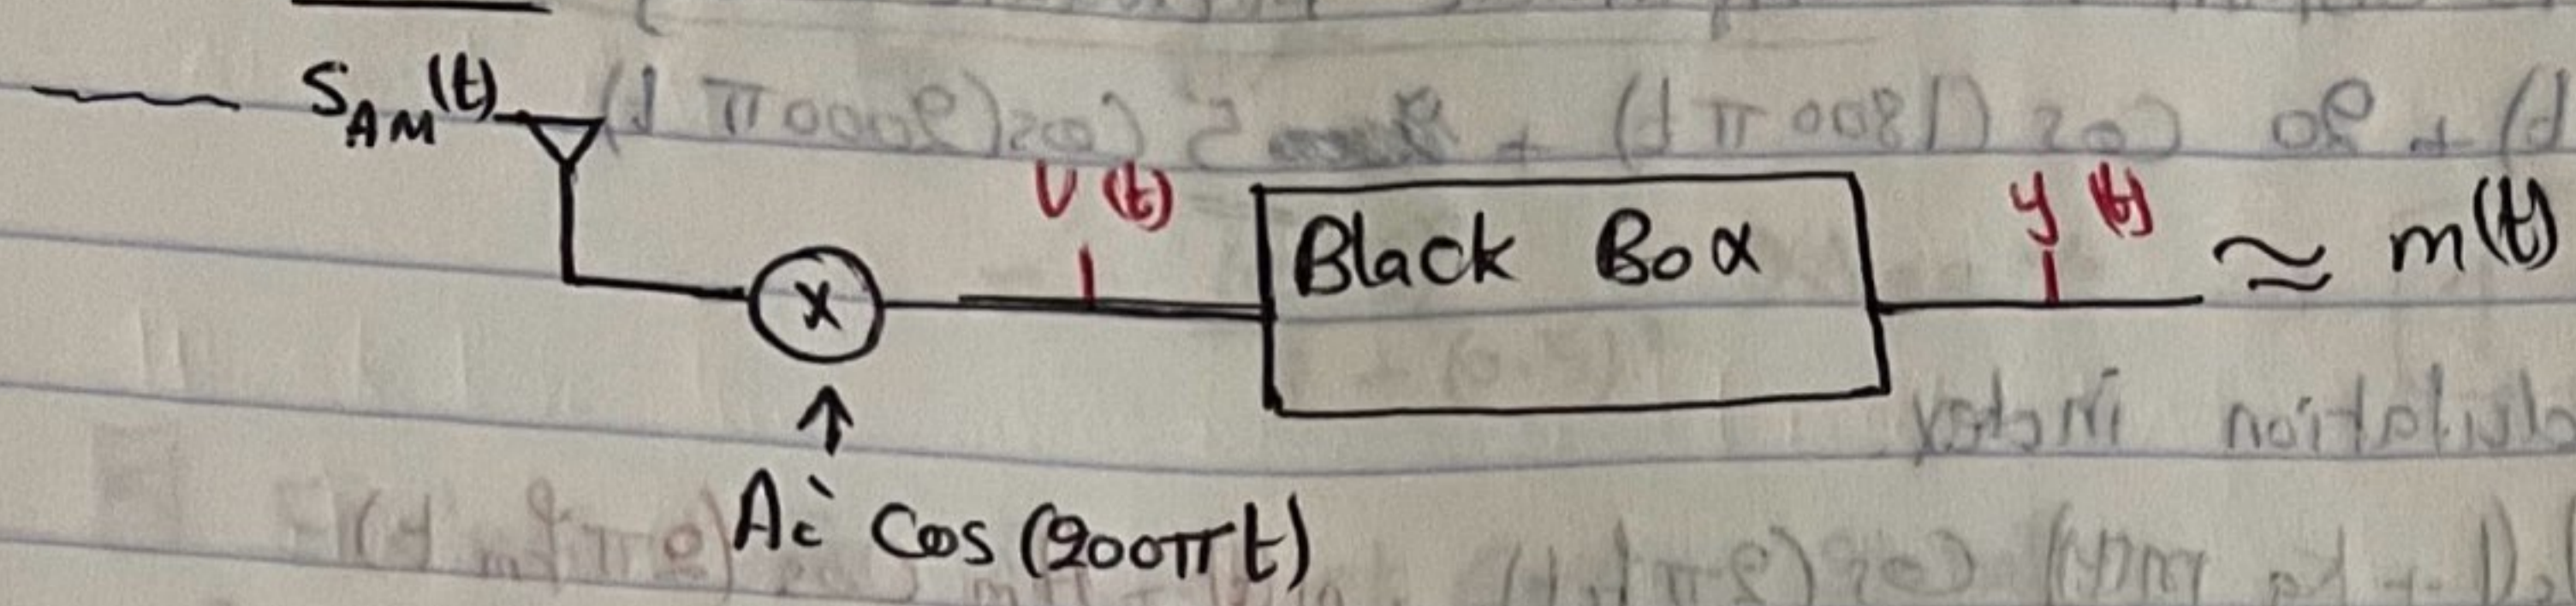 S_AM(t)
v(t)
Black Box
y(t)
≃ m(t)
×
Ac' Cos (200πt)